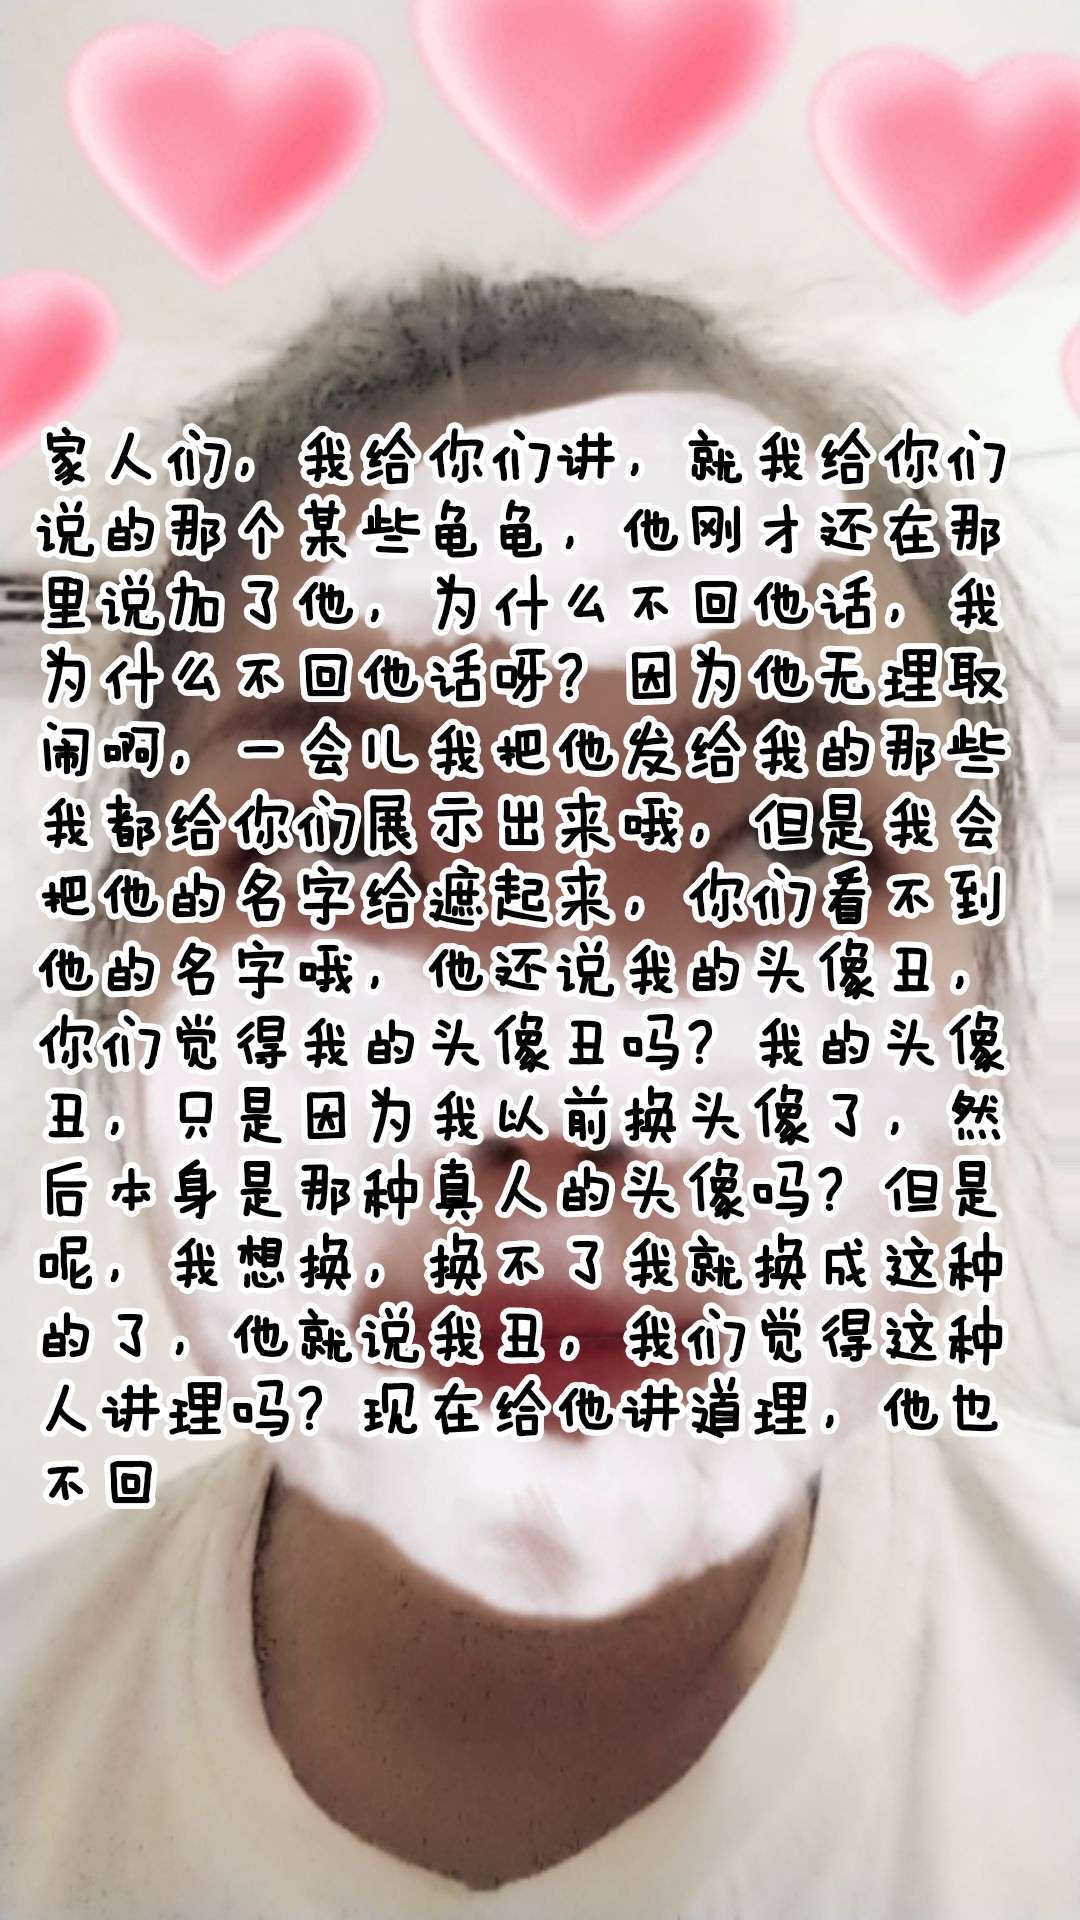 家人们，我给你们讲，就我给你们
说的那个某些龟龟，他刚才还在那
里说加了他，为什么不回他话，我
为什么不回他话呀？因为他无理取
闹啊，一会儿我把他发给我的那些
我都给你们展示出来哦，但是我会
把他的名字给遮起来，你们看不到
他的名字哦，他还说我的头像丑，
你们觉得我的头像丑吗？我的头像
丑，只是因为我以前换头像了，然
后本身是那种真人的头像吗？但是
呢，我想换，换不了我就换成这种
的了，他就说我丑，我们觉得这种
人讲理吗？现在给他讲道理，他也
不回